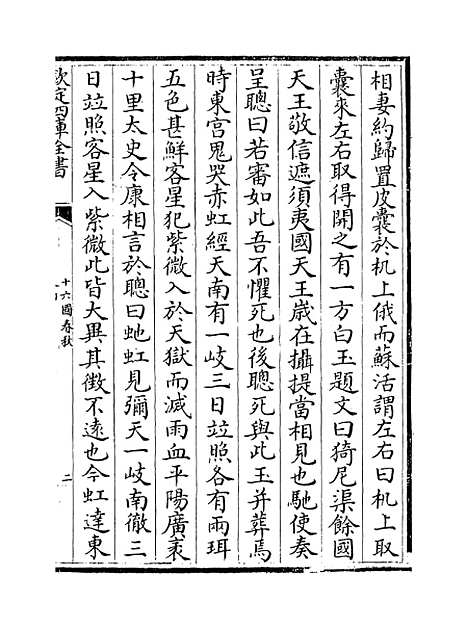 相妻約歸置皮囊於机上俄而蘇活謂左右曰机上取
囊來左右取得開之有一方白玉題文曰猗尼渠餘國
天王敬信遮須夷國天王歳在攝提當相見也馳使奏
呈聰曰若審如此吾不懼死也後聰死與此玉并葬焉
時東宫鬼哭赤虹經天南有一岐三日竝照各有兩珥
五色甚鮮客星犯紫微入於天獄而滅雨血平陽廣袤
十里太史令康相言於聰曰虵虹見彌天一岐南徹三
日竝照客星入紫微此皆大異其徴不逺也今虹達東
欽定四庫全書
十六國春秋
二